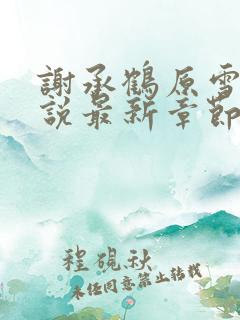 謝承鶴原雪
說最新章節
程硯秋
未经同意禁止转载